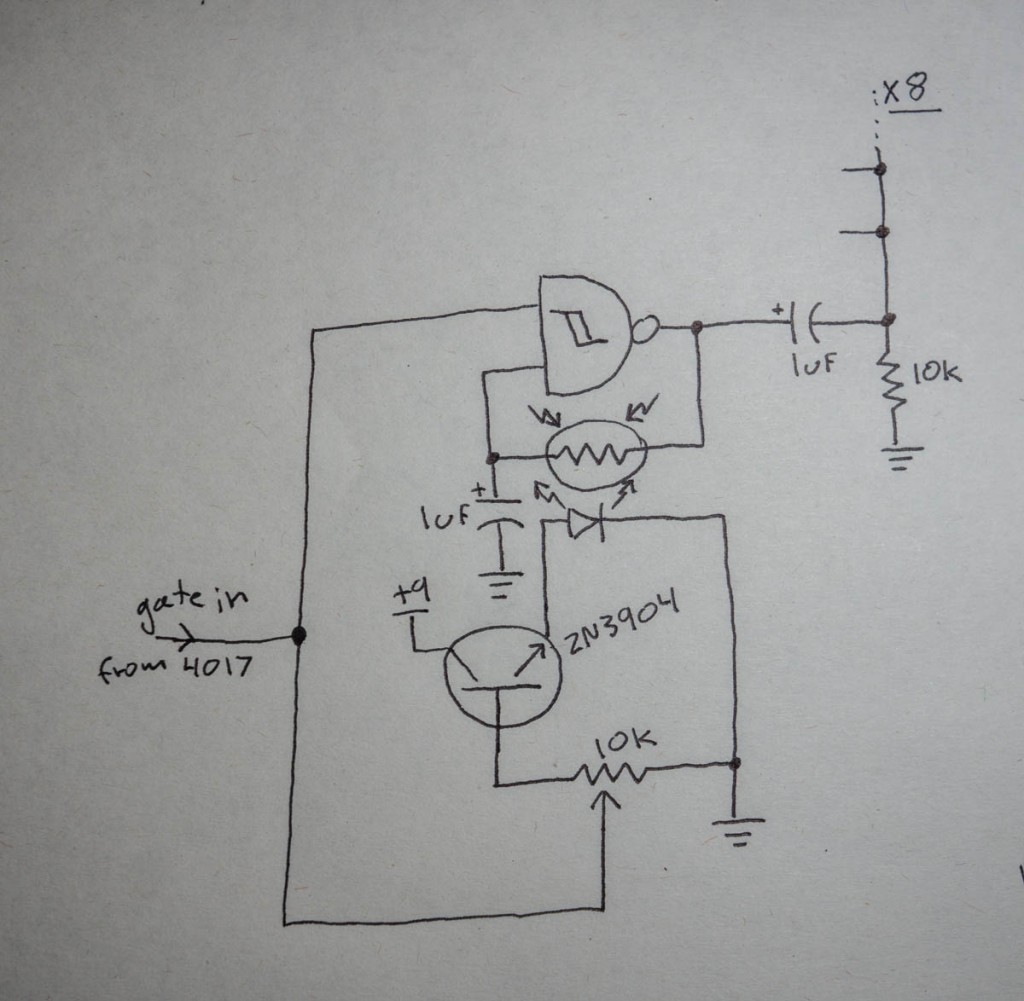 x8
+
1uF
10k
+
1uF
+9
gate in
from 4017
2N3904
10k